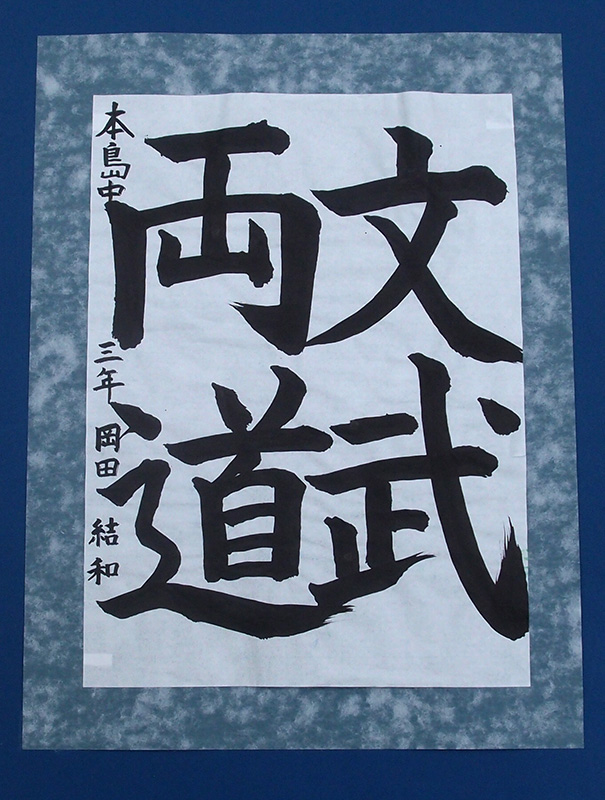 文武
両道
本島中 三年 岡田 結和